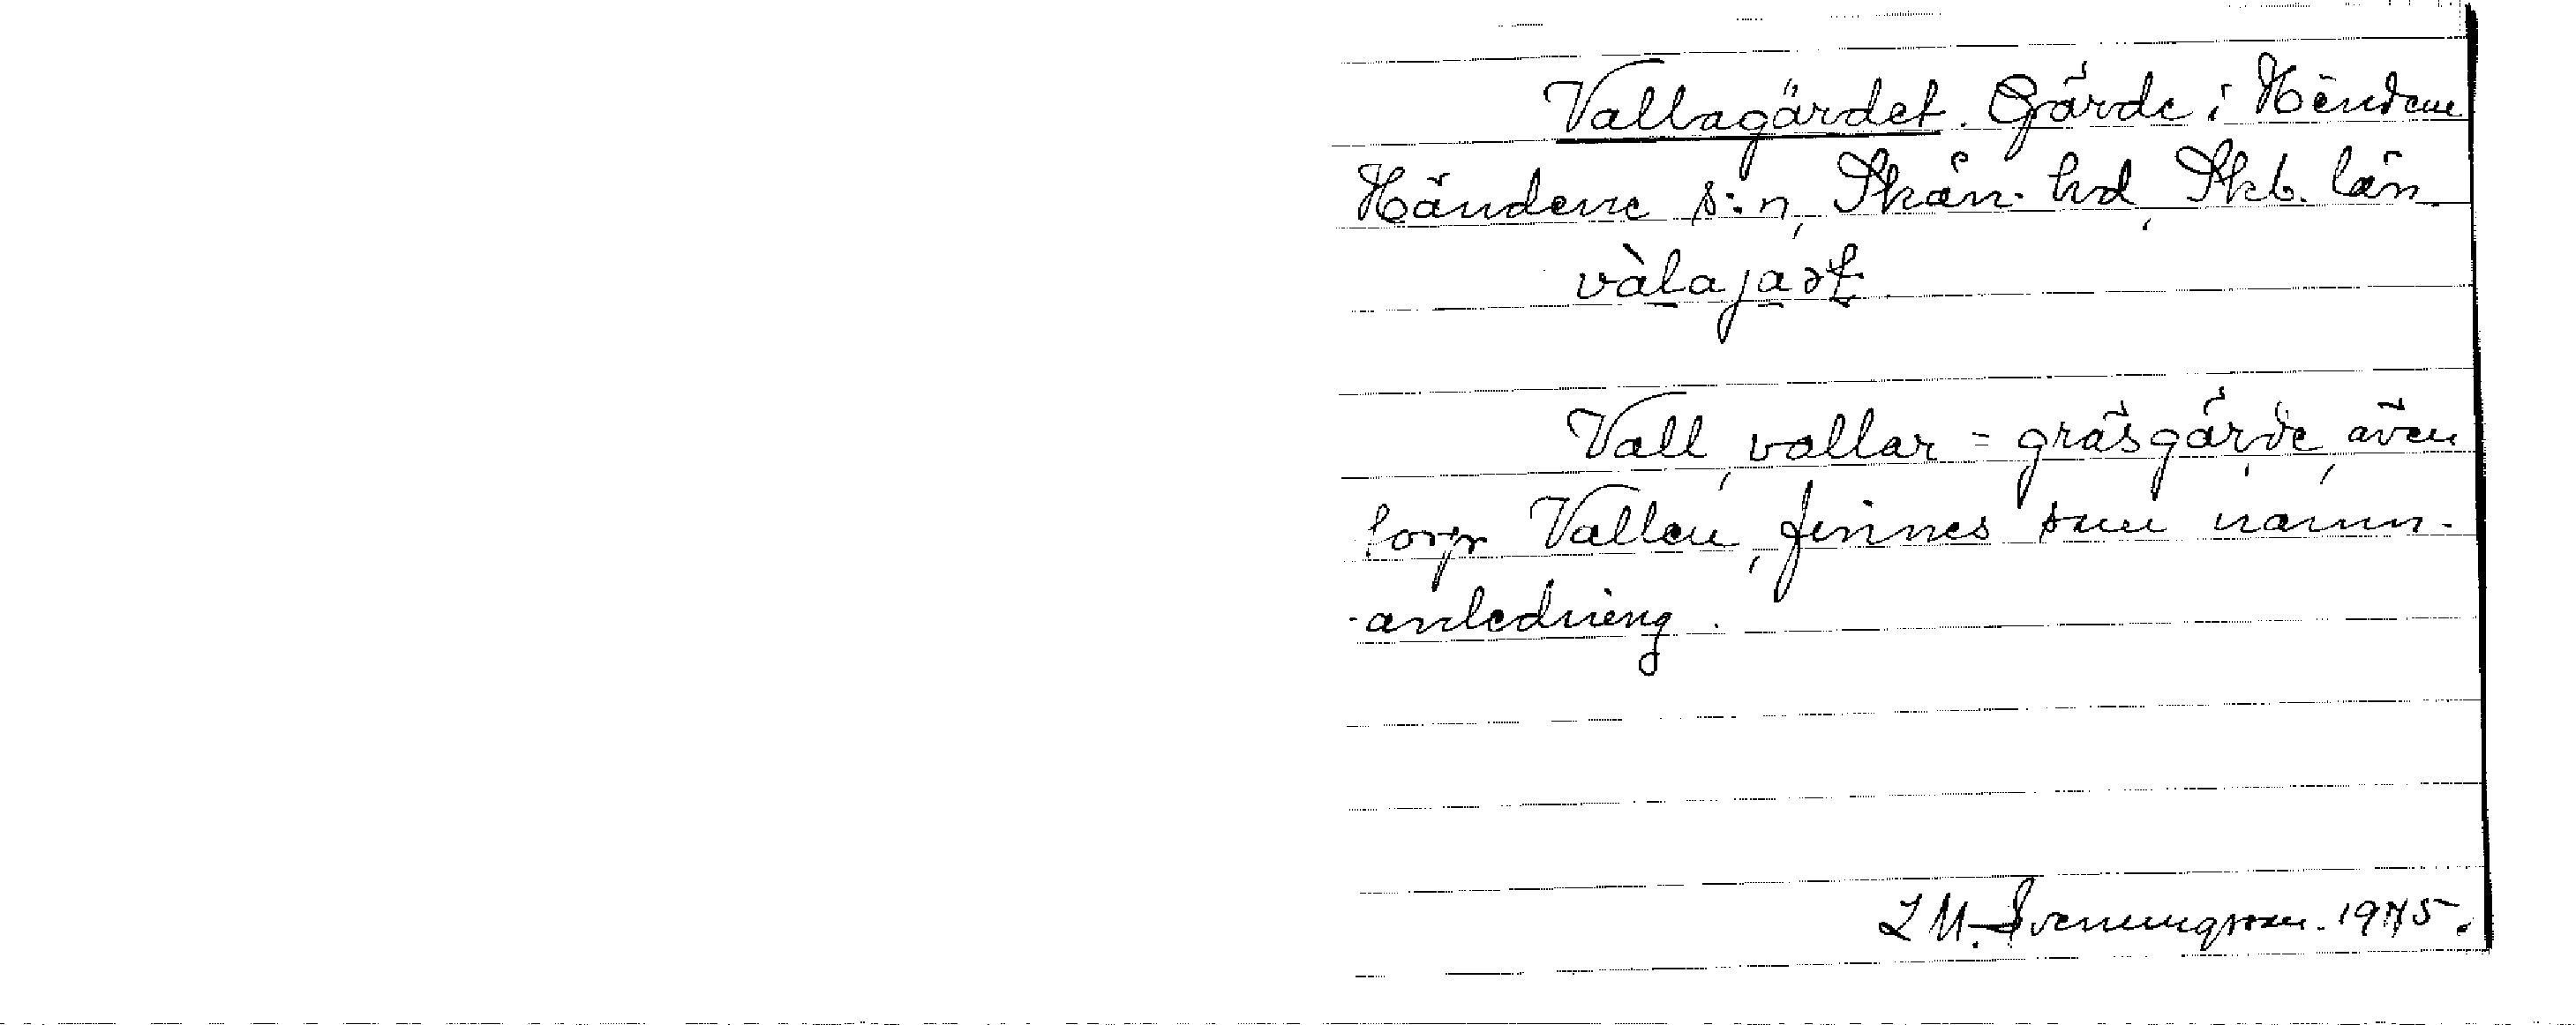 Vallagärdet. Gärde i Händene
Händene s:n, Skån. hd, Skb. län.
vàlajaṣt
Vall, vallar = gräsgärde, även
torp Vallen, finnes som namn-
-anledning.
L M. Svenungsson. 1975.